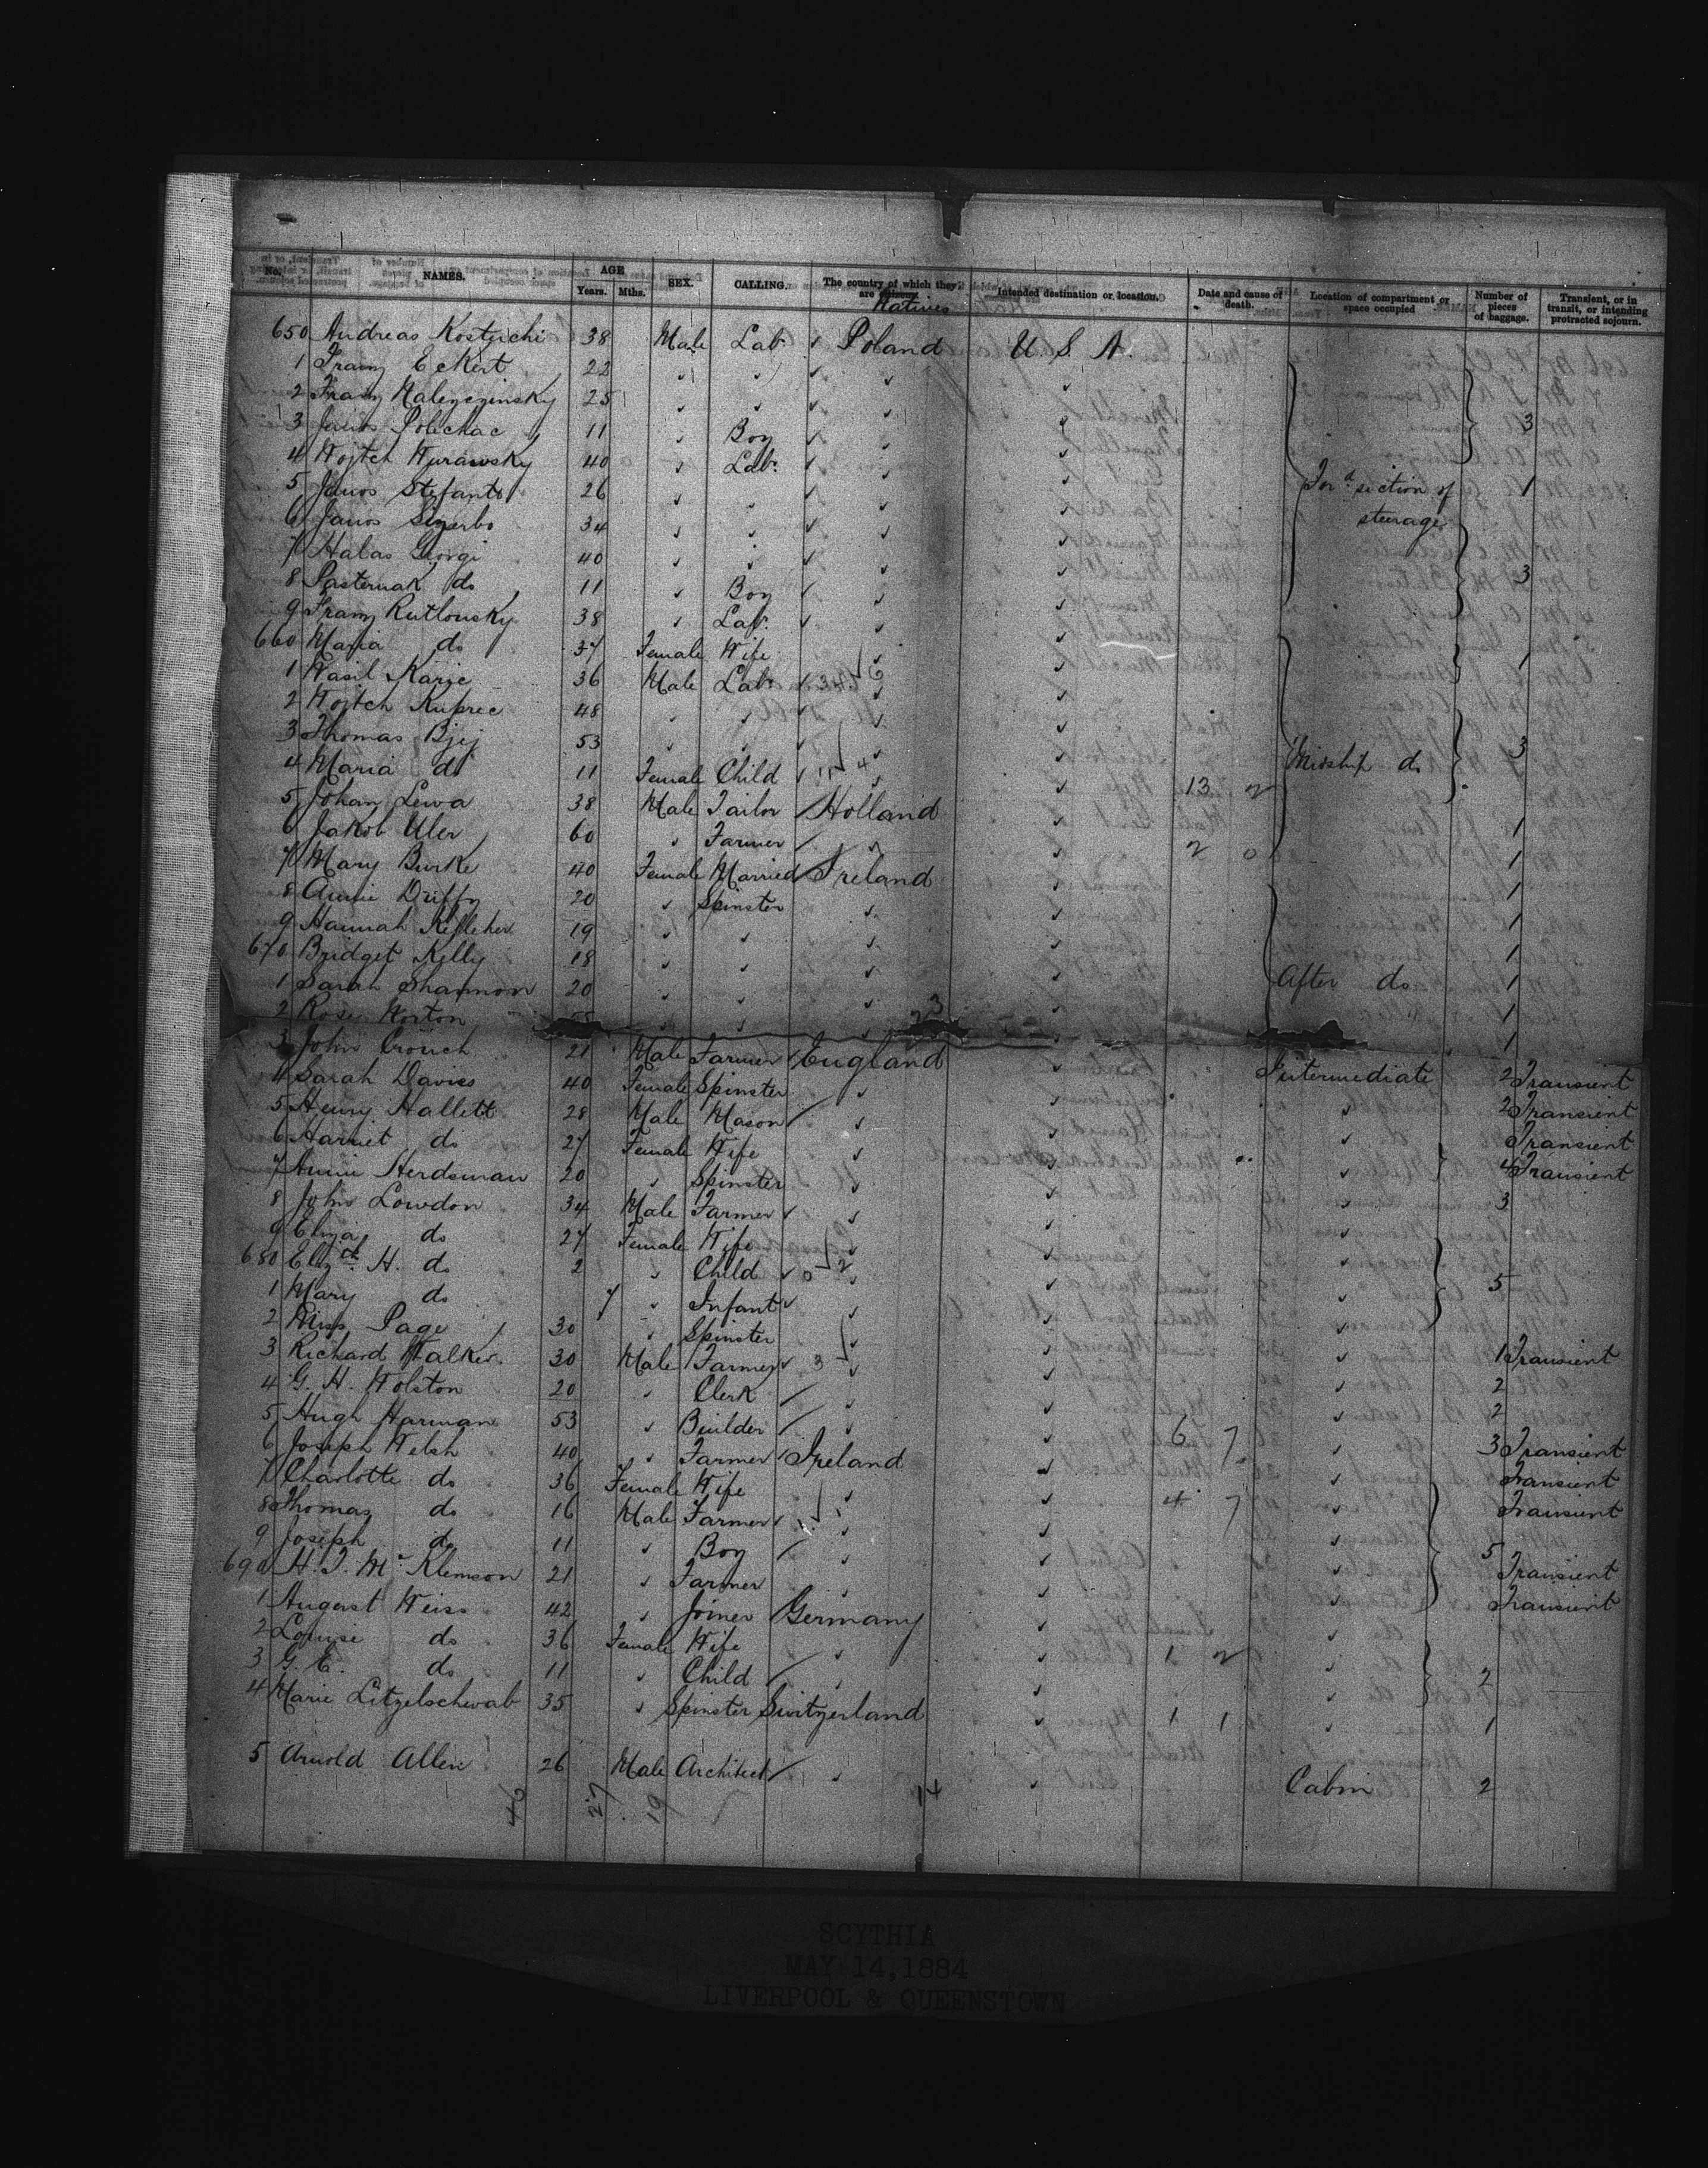 No. NAMES. AGE Years. Mths. SEX. CALLING. The country of which they are citizens. Natives Intended destination or location. Date and cause of death. Location of compartment or space occupied Number of pieces of baggage. Transient, or in transit, or intending protracted sojourn.
650 Andreas Kostyichi 38 Male Labr Poland U. S. A.
1 Franz Eckert 22 " "
2 Franz 25 " "
3 Janos Polichac 11 " Boy 3
4 Wojtch Wurawsky 40 " Labr
5 Janos Stefants 26 " " Ford section of steerage 1
6 Janos 34 " "
7 Halas Giorgi 40 " "
8 Pasternak do 11 " Boy 3
9 Franz Rutlousky 38 " Labr
660 Maria do 37 Female Wife 1
1 Wasil 36 Male Labr
2 Wojtch Kuprec 48 " "
3 Thomas Bjej 53 " " 3
4 Maria do 11 Female Child Midship do
5 Johan Lewa 38 Male Tailor Holland 13
6 Jakob Uler 60 " Farmer " 1
7 Mary Burke 40 Female Married Ireland 2 0 1
8 Annie Driffy 20 " Spinster " 1
9 Hannah Kelleher 19 " " " 1
670 Bridget Kelly 18 " " " 1
1 Sarah Shannon 20 " " " After do 1
2 Rose Norton " " " 1
3 John Crouch 21 Male Farmer England 1
4 Sarah Davies 40 Female Spinster " Intermediate 2 Transient
5 Henry Hallett 28 Male Mason " " 2 Transient
6 Harriet do 27 Female Wife " " Transient
7 Annie Herdsman 20 " Spinster " " 4 Transient
8 John Lowdon 34 Male Farmer " 3
9 Eliza do 27 Female Wife "
680 Elizth H. do 2 " Child " 5
1 Mary do 7 " Infant "
2 Miss Page 30 " Spinster "
3 Richard Walker 30 Male Farmer " 1 Transient
4 G. H. Wolston 20 " Clerk " 2
5 Hugh Harman 53 " Builder 6 7 2
6 Joseph Welsh 40 " Farmer Ireland 3 Transient
7 Charlotte do 36 Female Wife " Transient
8 Thomas do 16 Male Farmer " 4 7 Transient
9 Joseph do 11 " Boy " 5
690 Klemson 21 " Farmer " Transient
1 August Weiss 42 " Joiner Germany Transient
2 Louise do 36 Female Wife "
3 G. E. do 11 " Child " 1 2 2
4 Marie Litzelschwab 35 " Spinster Switzerland 1 1 1
5 Arnold Allen 26 Male Architect " Cabin 2
46 27 19 14
SCYTHIA
MAY 14,1884
LIVERPOOL & QUEENSTOWN